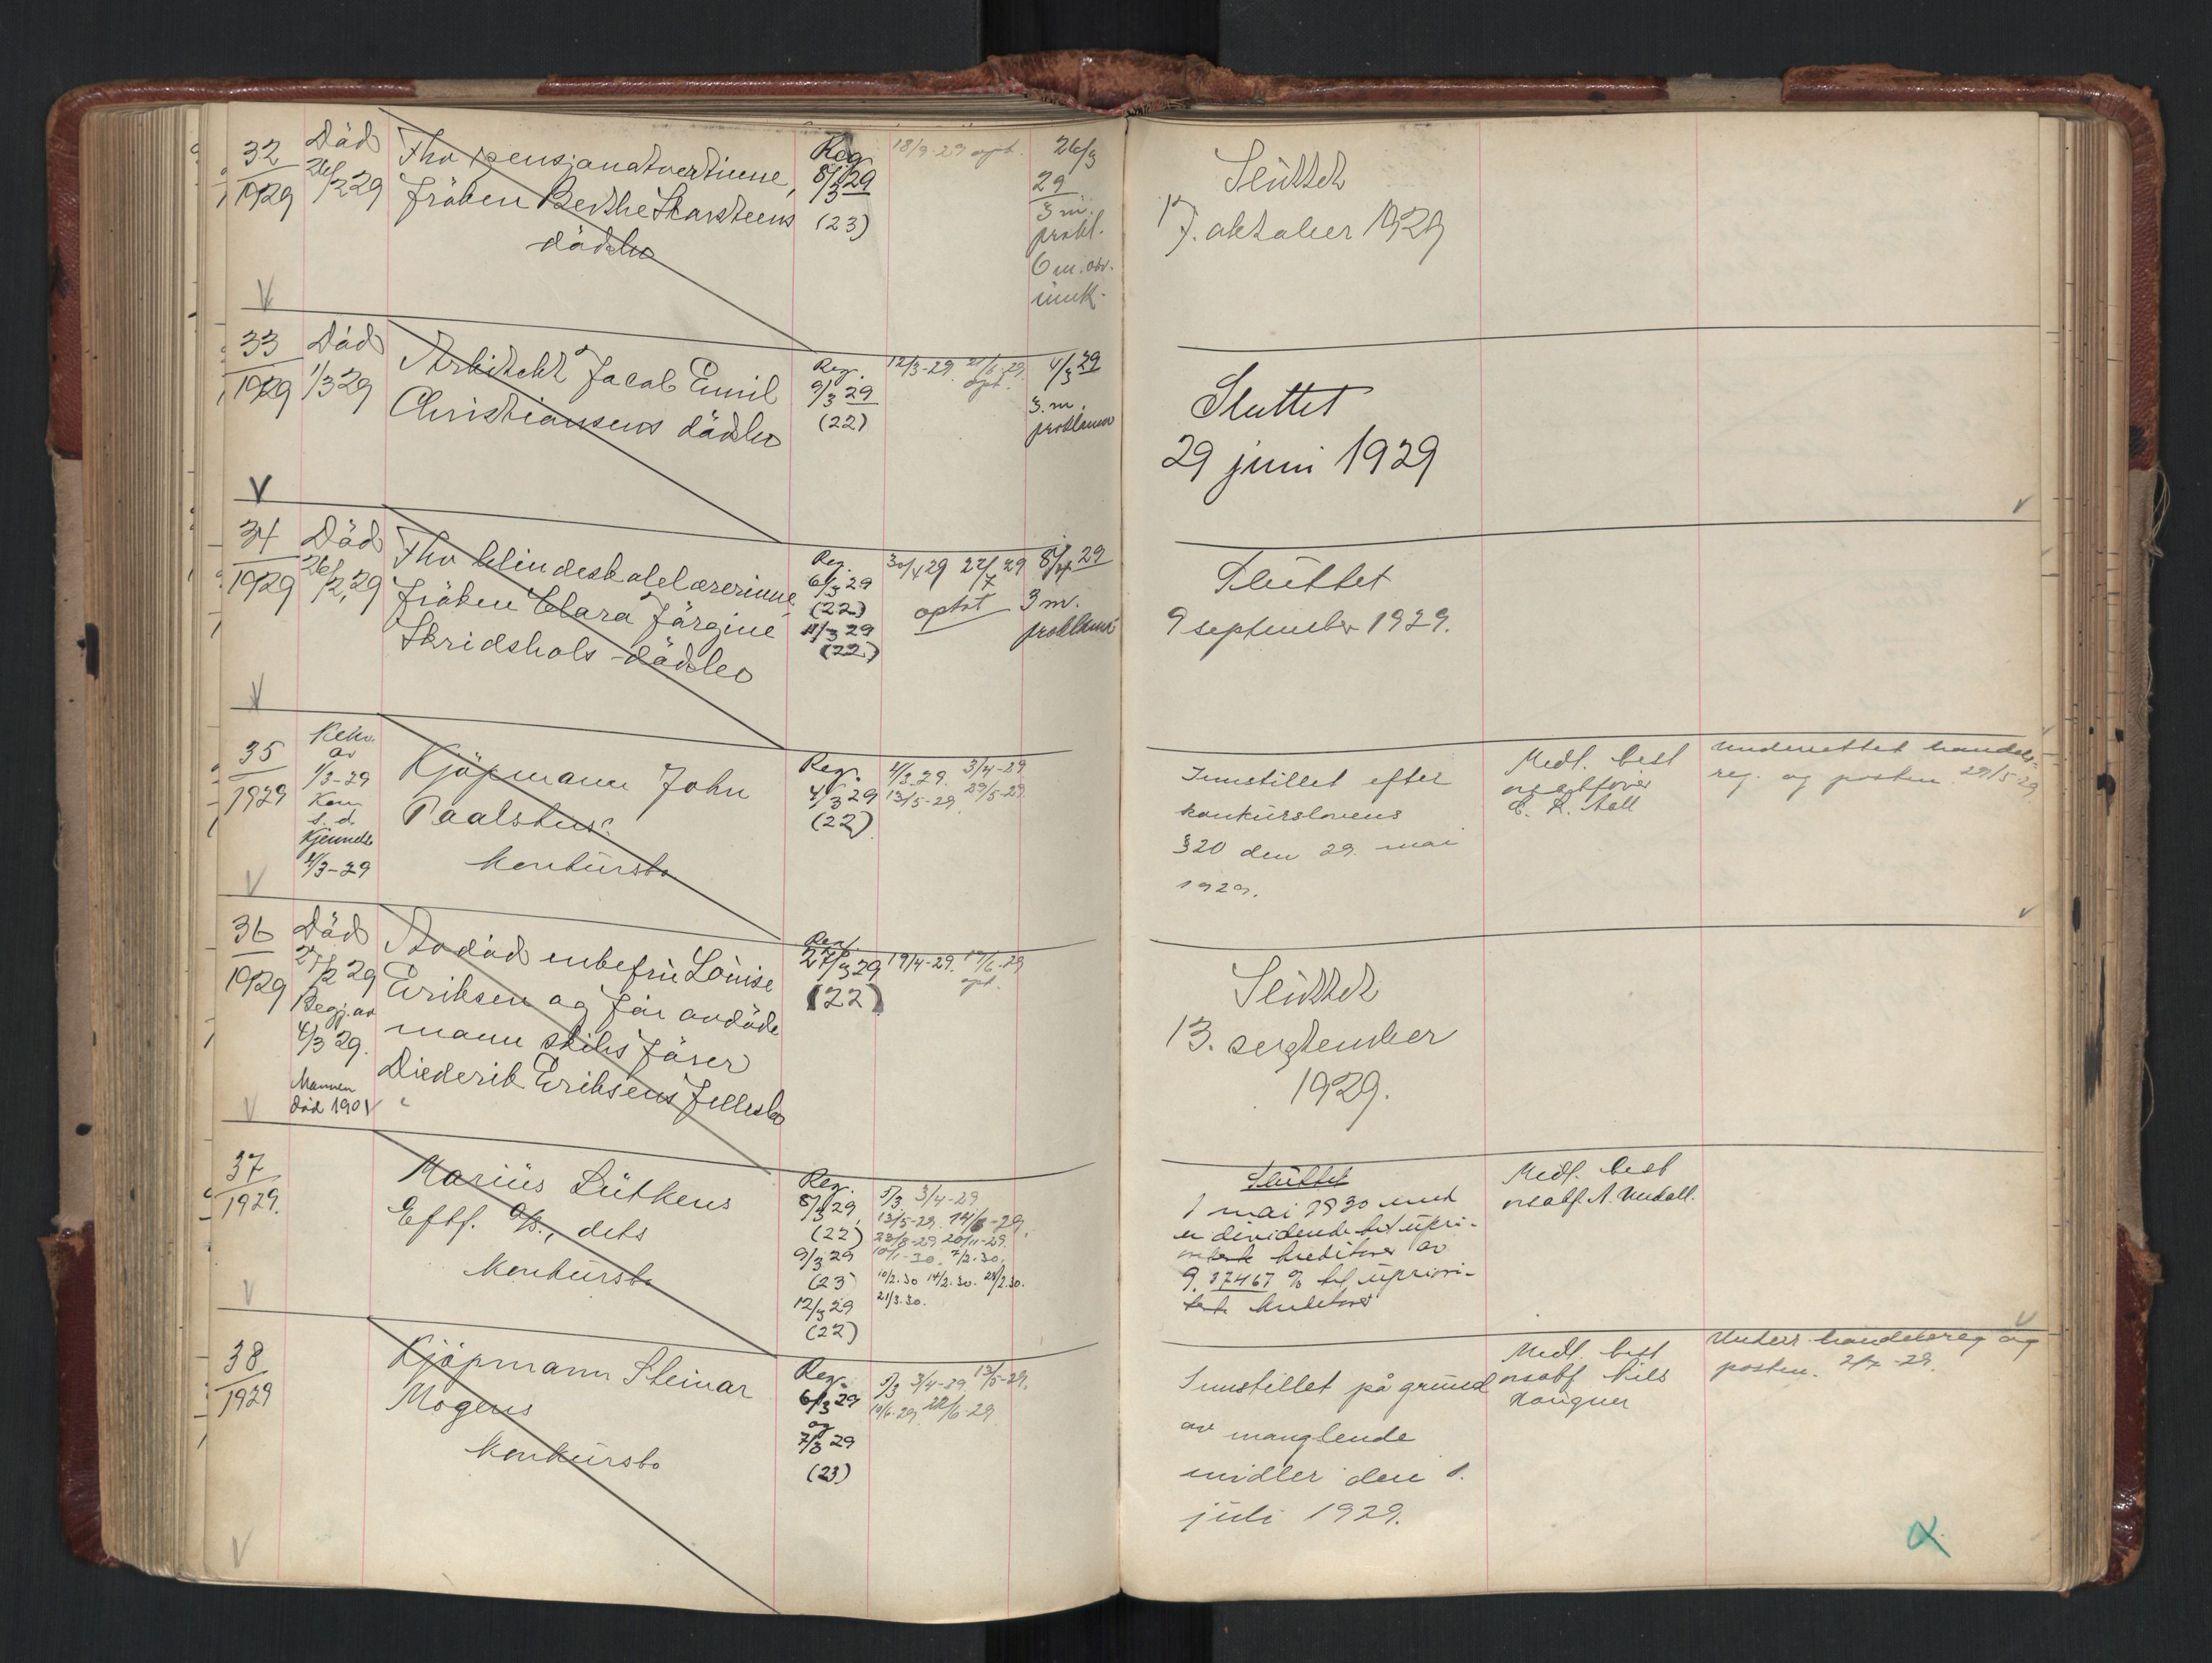 32
1929
Död
26/2 29
Fhv pensjonatvertinne,
fröken Berthe Skarsteens
dödsbo
Reg
8/3 29
(23)
18/9-29 opt.
26/3
29
3 m.
prokl.
6 m. obv.
innk.
Sluttet
17. oktober 1929
V
33
1929
Död
1/3 29
Arkitekt Jacob Emil
Christiansens dödsbo
Reg.
9/3 29
(22)
12/3-29. 21/6-29.
opt.
4/3 29
3. m.
proklama
Sluttet
29 juni 1929
V
34
1929
Död
26/2, 29
Fhv blindeskolelærerinne,
fröken Clara Jörgine
Skridshols dödsbo
Reg.
6/3 29
(22)
11/3 29
(22)
30/4 29 22/7 29
optat
8/4 29
3 m.
proklama
Sluttet
9 september 1929.
V
35
1929
Rekv.
av
1/3-29
Kon.
s. d.
Kjennels
4/3-29
Kjöpmann John
Paalshus
konkursbo
Reg.
4/3 29
(22)
4/3.29. 3/4-29
13/5-29. 29/5-29.
Innstillet efter
konkurslovens
§20 den 29. mai
1929.
Medl. best
o.r.sakfører
C. R. Aall
Underrettet handels-
reg. og posten 29/5-29
V
36
1929
Död
27/2 29
Begj. av
4/3 29.
Mannen
död 1901
Avdöd enkefru Louise
Eriksen og för avdöde
mann skibsförer
Diederik Eriksens fellesbo
Reg.
27/3 29
(22)
19/4-29. 19/6-29
opt.
Sluttet
13. september
1929.
V
37
1929.
Marius Lütkens
Eftf. A/S., dets
konkursbo
Reg.
8/3 29,
(22)
9/3 29
(23)
12/3 29
(22)
5/3 3/4-29
13/5-29. 14/6-29.
23/8-29 20/11-29.
10/1-30. 7/2.30.
10/2.30 14/2.30. 28/2.30.
21/3.30.
Sluttet
1 mai 1930 med
en dividende til upri-
oriterte kreditorer av
9.27467 % til upriori-
terte kreditorer
Medl. best
orsakf. A. Undall.
V
38
1929
Kjöpmann Steinar
Mogens
konkursbo
Reg.
6/3 29
og
7/3 29
(23)
5/3 3/4-29. 13/5-29.
10/6-29. 22/6-29
Innstillet på grunn
av manglende
midler den 1.
juli 1929.
Medl. best
orsakf Nils
Underr. handelsreg og
posten. 2/7-29.
V